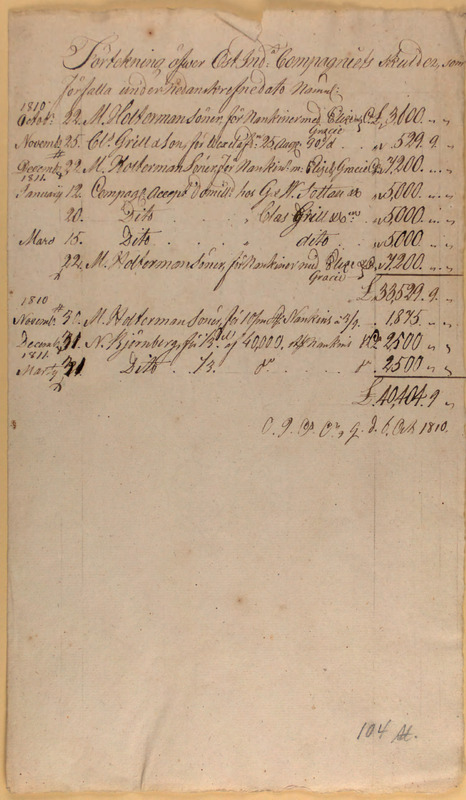 Förtekning öfwer Ost Ind: Compagniets Skulder, som
förfalla under nedanskrefne dato Neml:
1810
Octob: 22. M. Holterman Söner, för Nankiner med Eliza Gracie £ 3,600. " "
Novemb: 25. Cls. Grill & Son, för 25 Aug. 90/d " 529. 9 "
Decemb: 22. M. Holterman Söner, för Nankin: m: Eliza Gracie 7,200. " "
1811
Januarij 12. Compag. Accept. hos G. W. Tottau & " 5,000. " "
20. Dito " Clas Grill & " 5,000 " "
Mars 15. Dito " dito " 5,000 " "
22. M. Holterman Söner, för Nankiner med Eliza Gracie 7,200. " "
£ 33,529. 9 "
1810
Novemb: 30. M. Holterman Söner, för Nankins à 3/9. 1875. " "
Decemb: 31. N. Björnberg, för 1/3 of 40,000. Nankins 2500 " "
1811
Mars 31. Dito 1/3 do do 2500 " "
£ 40,404. 9 "
O. I. C. C., G. d. 6. Oct. 1810.
104